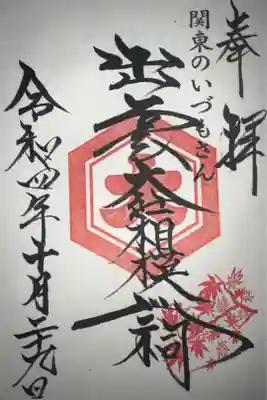 奉拝
関東のいづもさん
出雲大社相模分祠
令和四年十月二十九日